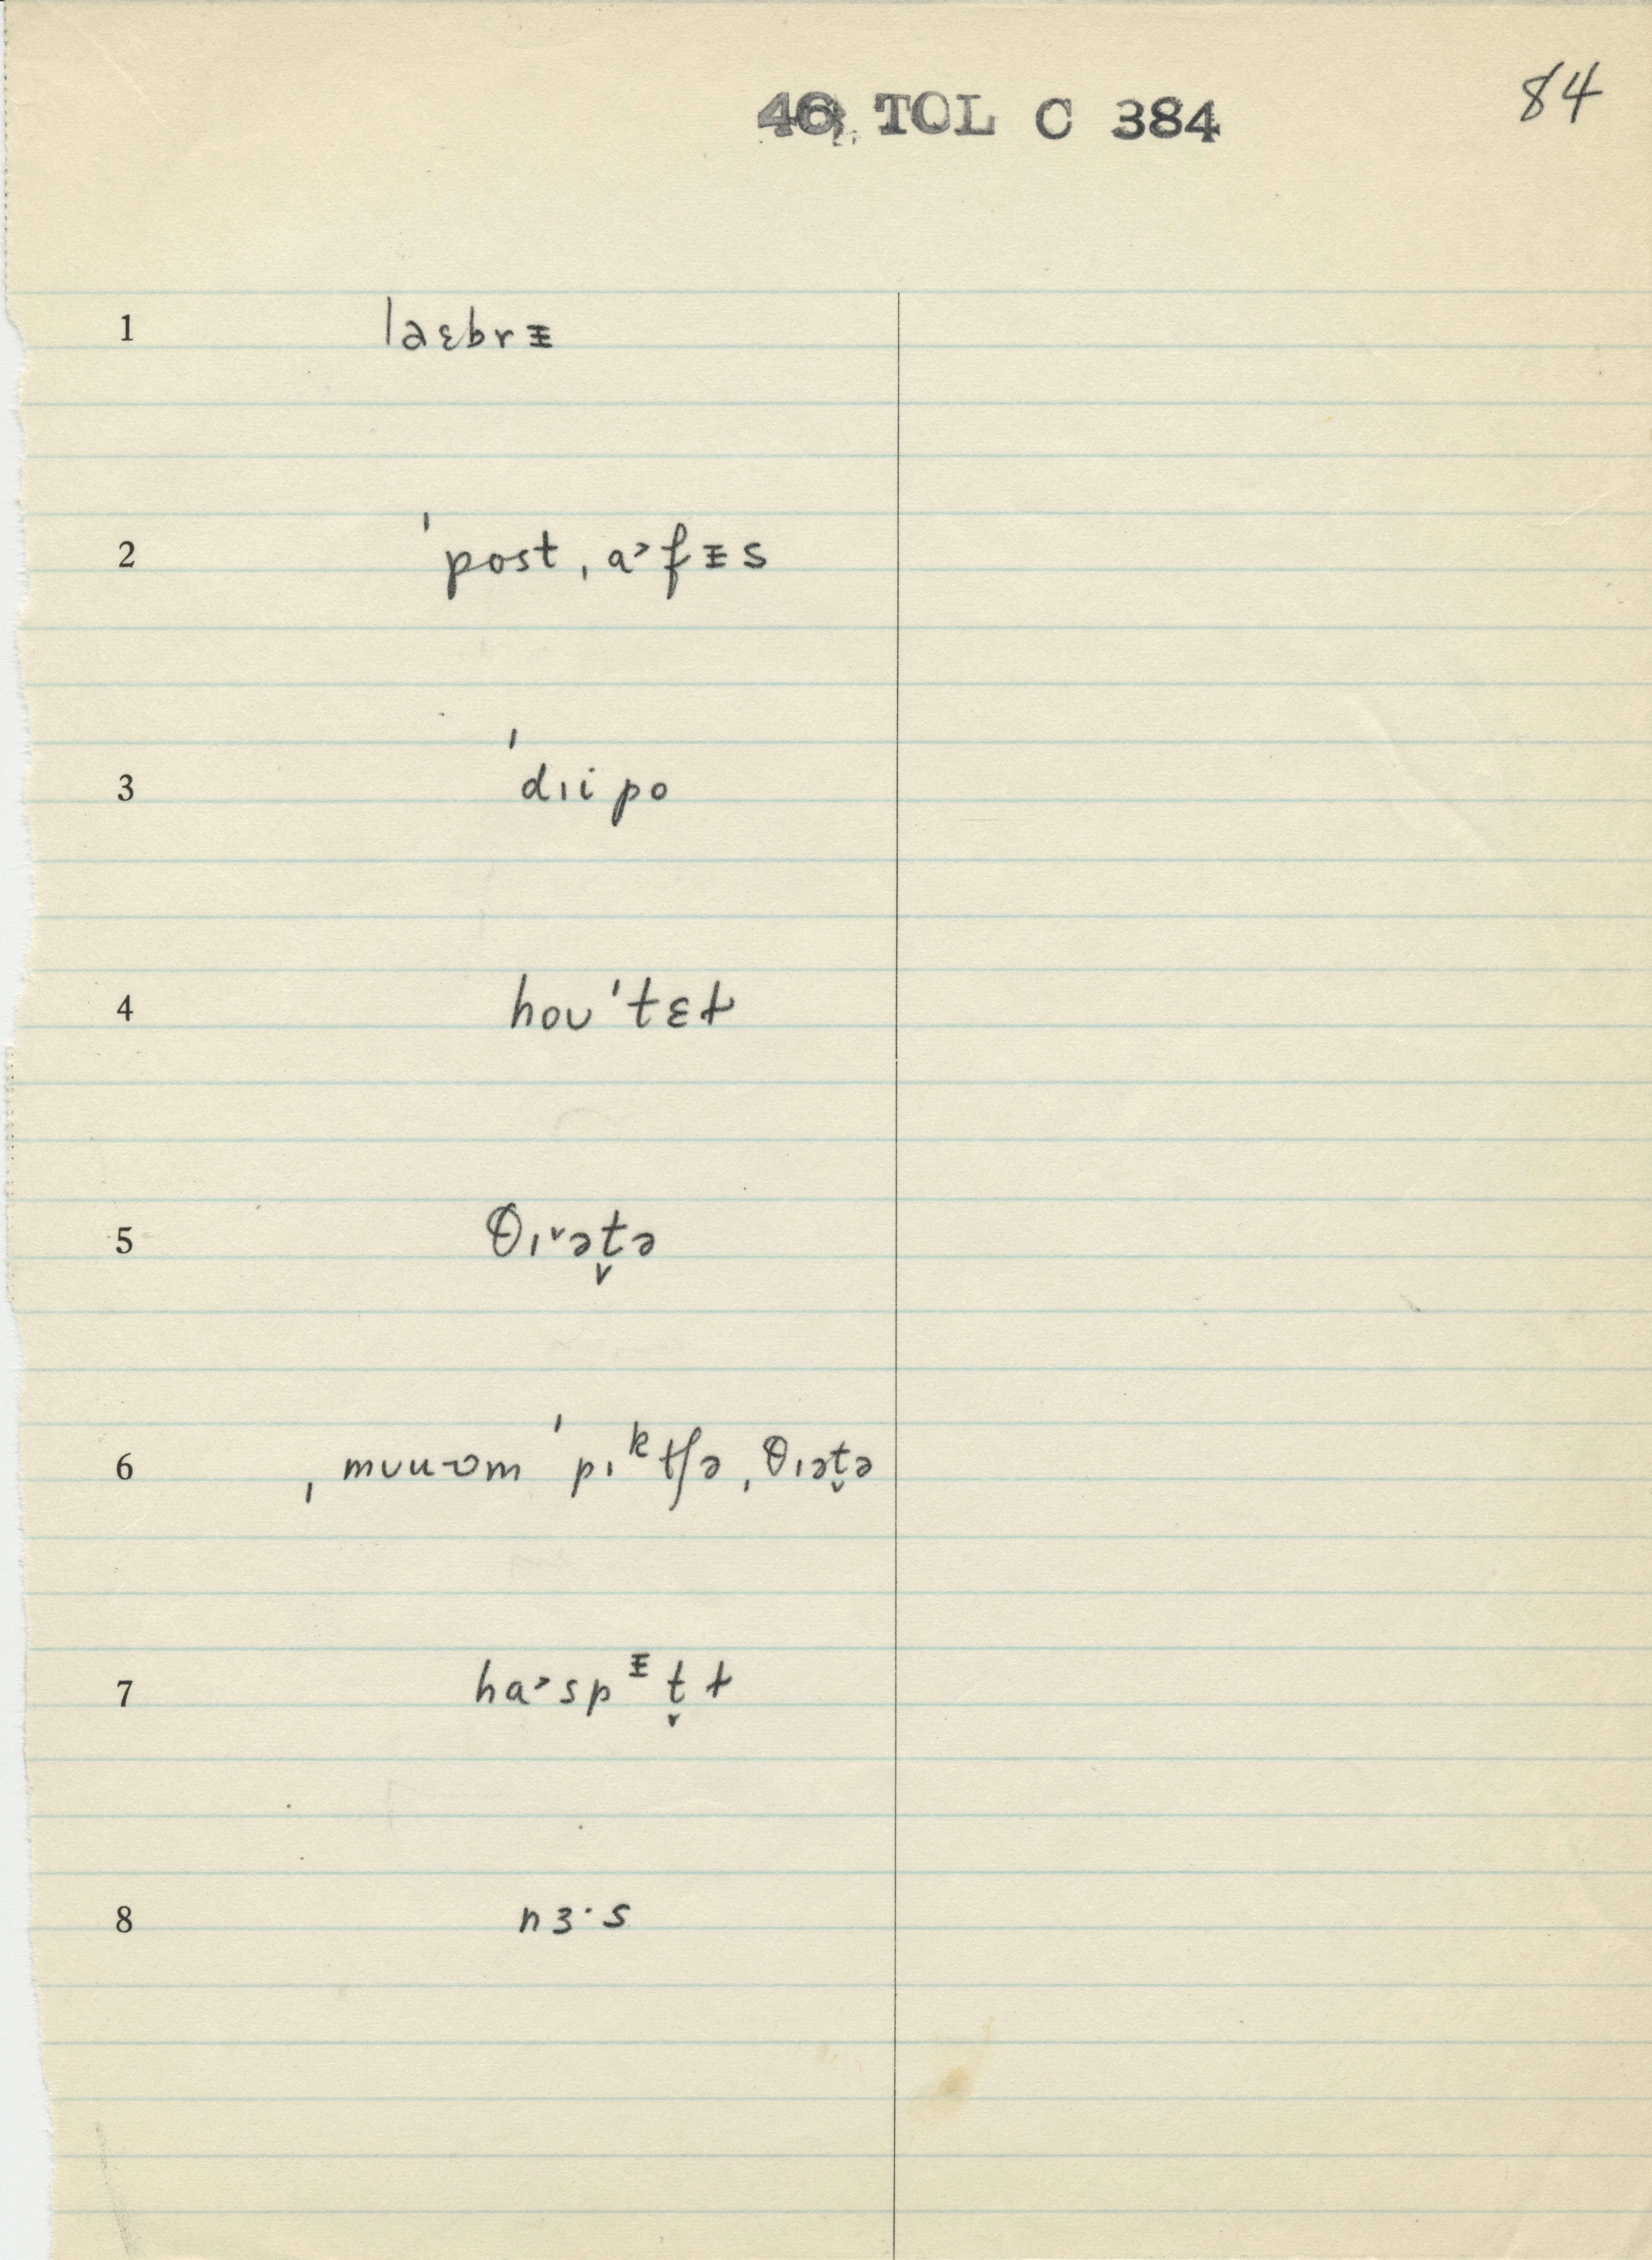 46, TOL C 384
84
1 laɛbrᵻ
2 ˈpostˌa˃fᵻs
3 ˈdɪipo
4 hoʊˈtɛɫ
5 θɪ˅ət̬ə
6 ˌmuʊʉ-ʊm ˈpɪᵏtʃəˌθɪət̬ə
7 ha˃spᵻt̬ɫ
8 nɜ·s